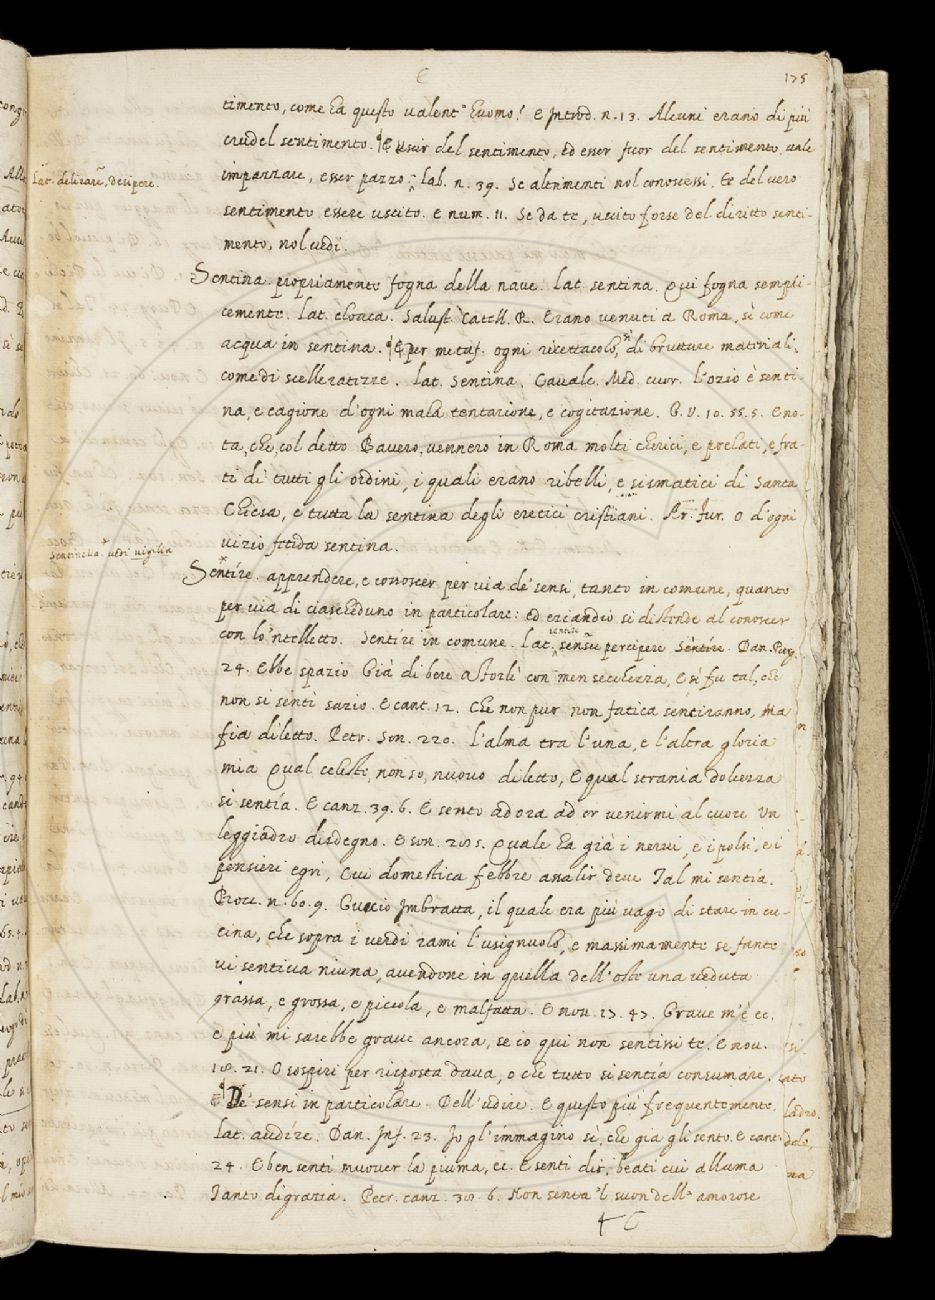 C
175
timento, come ha questo valent'huomo! E Introd. n. 13. Alcuni erano di più
crudel sentimento. ¶ E uscir del sentimento, ed esser fuor del sentimento, vale
Lat. delirare, desipere.
impazzare, esser pazzo. Lab. n. 39. Se altrimenti nol conoscessi, te del vero
sentimento essere uscito. e num. 11. Se da te, uscito forse del diritto senti-
mento, nol vedi.
Sentina. propriamente fogna della nave. lat. sentina. Qui fogna sempli-
cemente. lat. cloaca. Salust. Catell. R. Erano venuti a Roma, sì come
acqua in sentina. ¶ E per metaf. ogni ricettacolo, di brutture materiali,
come di scelleratezze. lat. sentina. Cavalc. Med. cuor. l'ozio è senti-
na, e cagione d'ogni mala tentazione, e cogitazione. G. V. 10. 55. 5. E no-
ta, che, col detto Bavero, vennero in Roma molti cherici, e prelati, e fra-
ti di tutti gli ordini, i quali erano ribelli, e sismatici di Santa
Chiesa, e tutta la sentina degli eretici cristiani. Ar. Fur. O d'ogni
vizio fetida sentina.
Sentinella vedi vigilia
Sentíre. apprendere, e conoscer per via de' sensi, tanto in comune, quanto
per via di ciascheduno in particolare: ed eziandio si distende al conoscer
con lo 'ntelletto. Sentíre in comune. lat. sentire sensu percipere Sentíre. Dan. Purg.
24. Ebbe spazio Già di bere a Forlì con men secchezza, E sì fu tal, che
non si sentì sazio. E cant. 12. Che non pur non fatica sentiranno, Ma
fia diletto. Petr. Son. 220. l'alma tra l'una, e l'altra gloria
mia Qual celesto, non so, nuovo diletto, E qual strania dolcezza
si sentía. E canz. 39. 6. E sento ad ora ad or venirmi al cuore Un
leggiadro disdegno. E son. 205. Quale ha già i nervi, e i polsi, e i
pensieri egri, Cui domestica febbre assalir deve Tal mi sentía.
Bocc. n. 60. 9. Guccio Imbratta, il quale era più vago di stare in cu-
cina, che sopra i verdi rami l'usignuolo, e massimamente se fante
vi sentiva niuna, avendone in quella dell'oste una veduta
grassa, e grossa, e piccola, e malfatta. E nov. 27. 47. Grave m'è ec.
e più mi sarebbe grave ancora, se io qui non sentissi te. E nov.
18. 21. O sospiri per risposta dava, o che tutto si sentía consumare.
¶ De' sensi in particolare. Dell'udire. E questo più frequentemente.
lat. audíre. Dan. Inf. 23. Io gl'immagino sì, che già gli sento. E cant.
24. E ben sentì muover la piuma, ec. E sentì dir, beati cui alluma
Tanto di grazia. Petr. canz. 38. 6. Non senta 'l suon dell' amorose
4 C